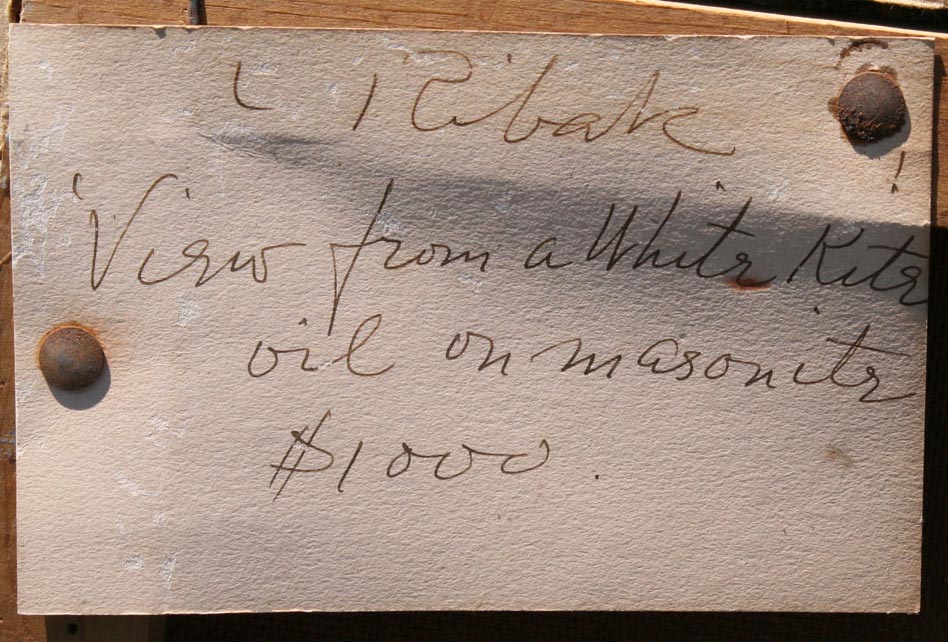 L Ribak
'View from a White Kite'
oil on masonite
$1000.